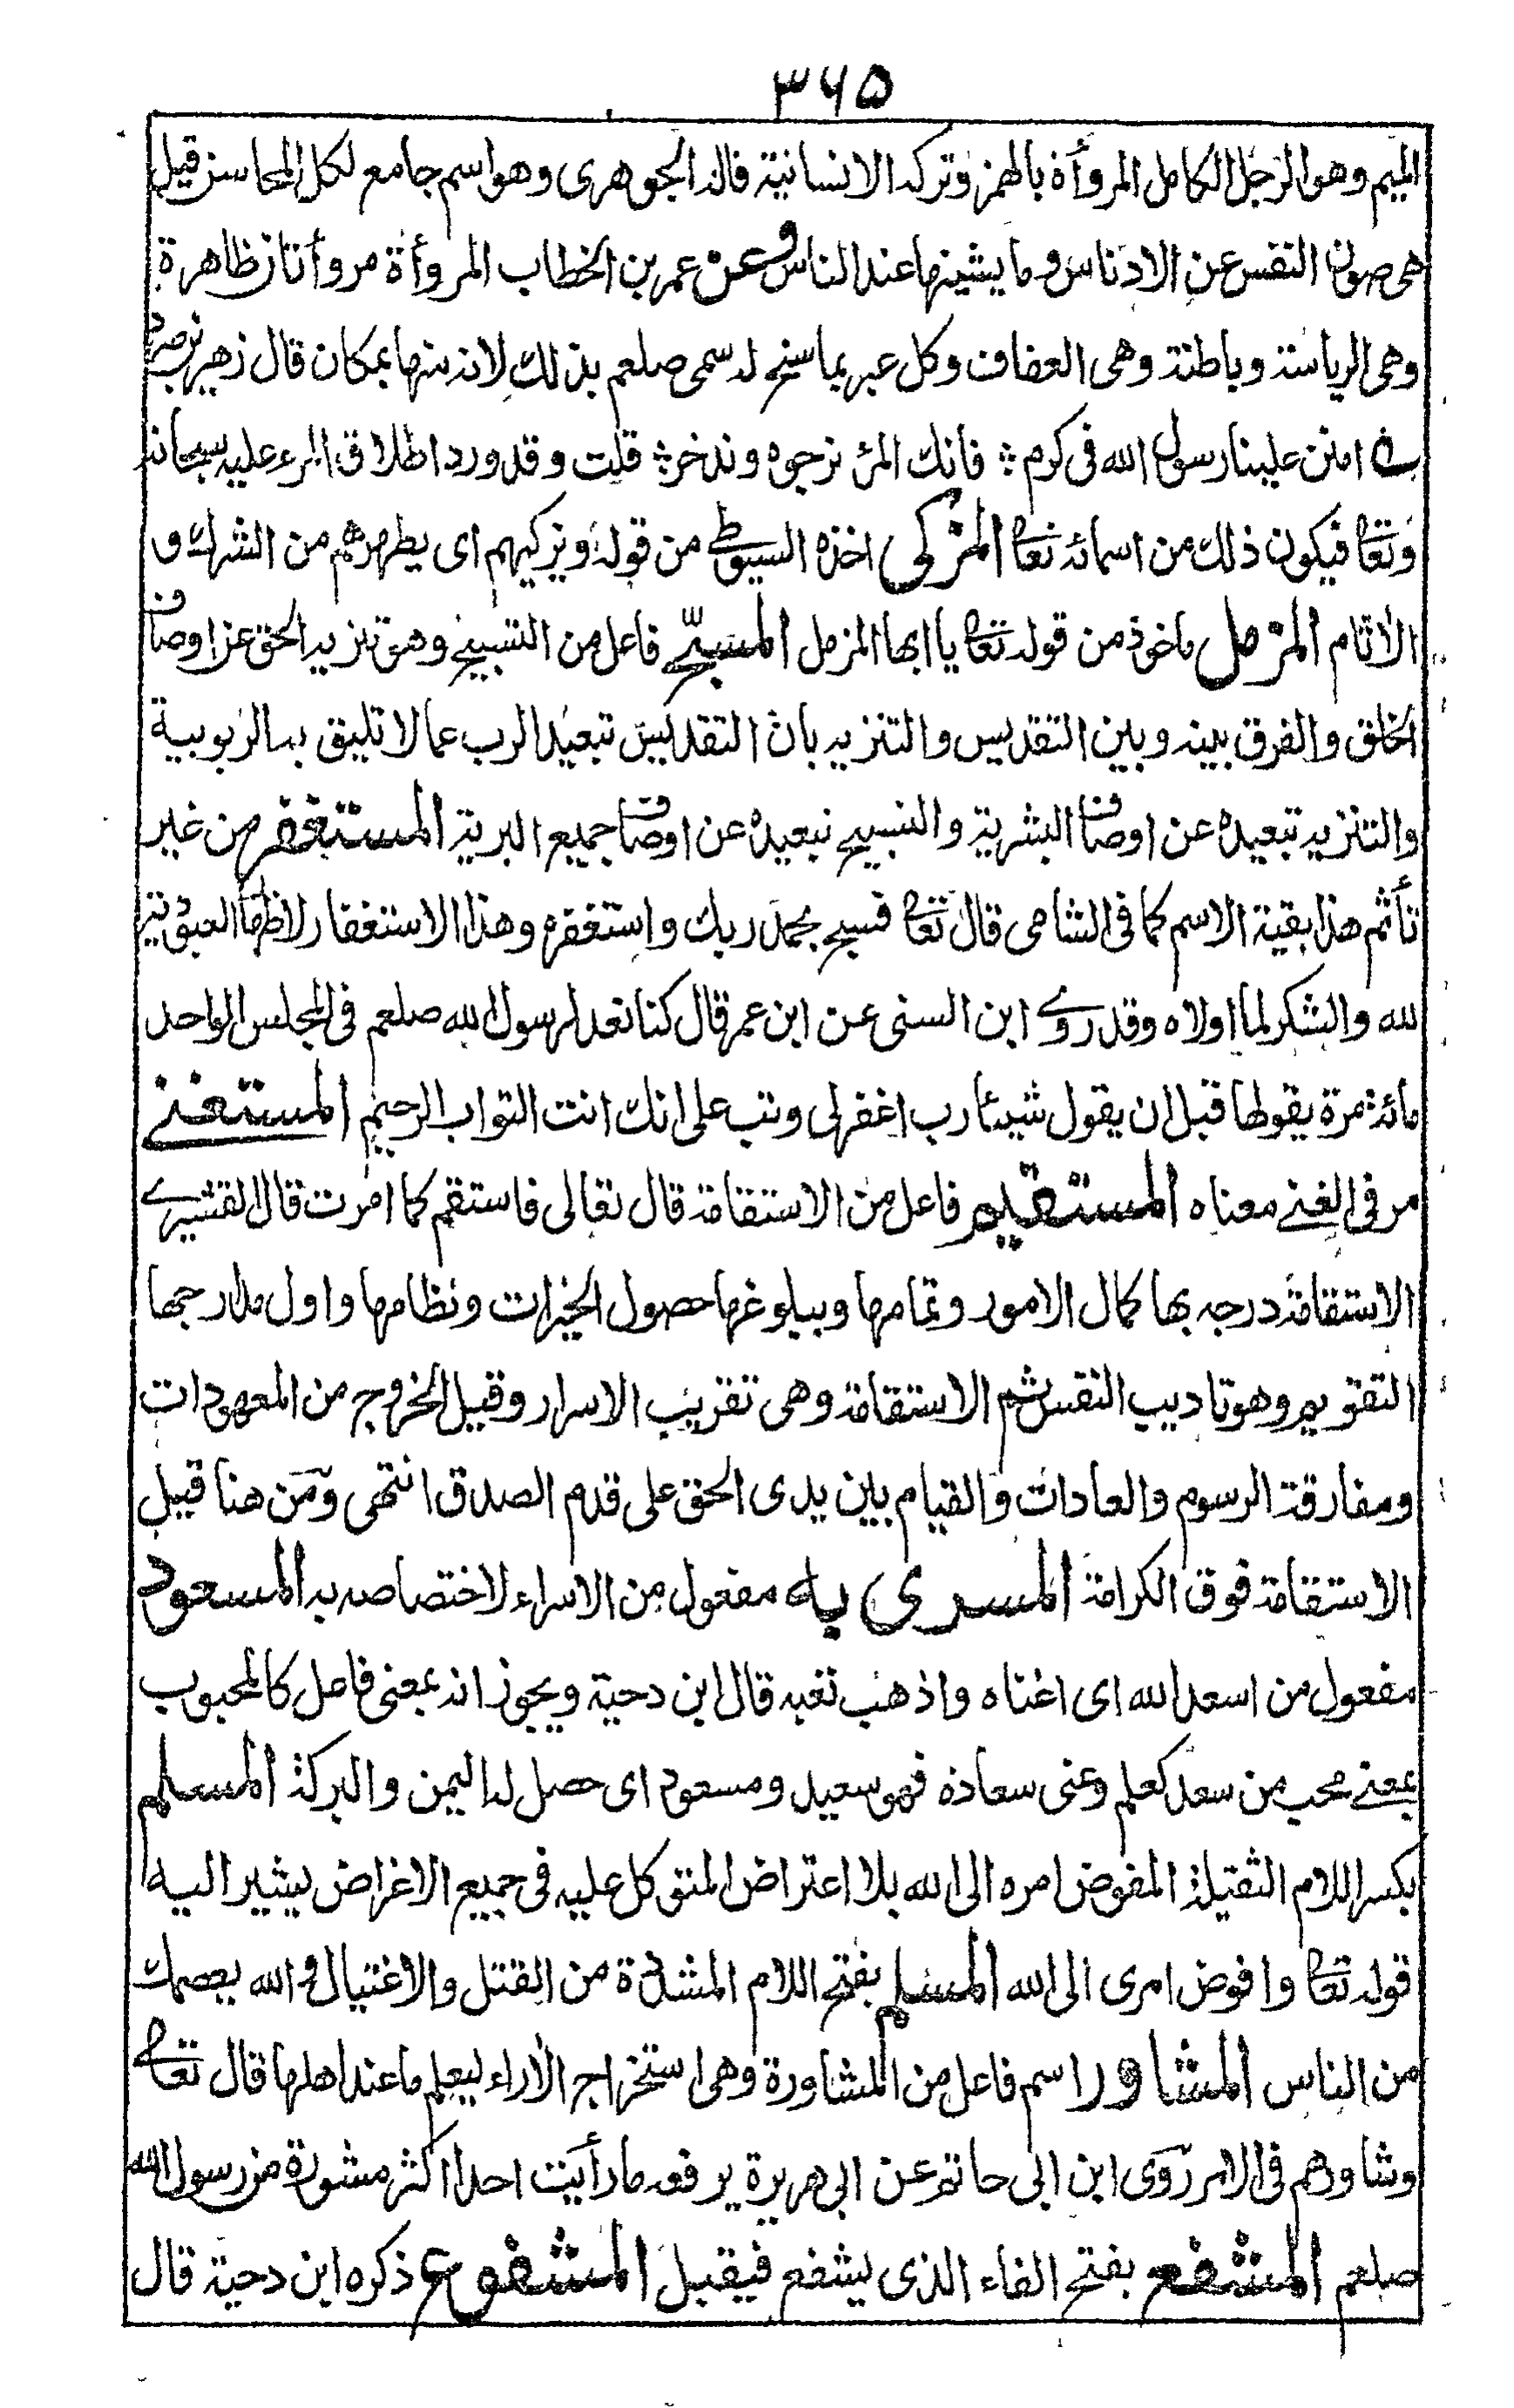 ٣٦٥
الميم وهو الرجل الكامل المروأة بالهمز وتركه الانسانية قاله الجوهرى وهو اسم جامع لكل المحاسن قيل
هى صون النفس عن الادناس وما يشينها عند الناس وعن عمر بن الخطاب المروأة مروأتان ظاهرة
وهى الرياسة وباطنة وهى العفاف وكل عبر بما سنح له سمى صلعم بذلك لانه منها بمكان قال زهير بن صرد
امنن علينا رسول الله فى كرم ؞ فانك المرء نرجوه وندخر ؞ قلت وقد ورد اطلاق المرء عليه سبحانه
وتعا فيكون ذلك من اسمائه تعا المزكى اخذه السيوطى من قوله ويزكيهم اى يطهرهم من الشرك و
الاثام المزمل ماخوذ من قوله تعا يا ايها المزمل المسبّح فاعل من التسبيح وهو تنزيه الحق عن اوصاف
الخلق والفرق بينه وبين التقديس والتنزيه بان التقديس تبعيد الرب عما لا تليق به الربوبية
والتنزيه تبعيده عن اوصاف البشرية والتسبيح تبعيده عن اوصاف جميع البرية المستغفر من غير
تأثم هذا بقية الاسم كما فى الشامى قال تعا فسبح بحمد ربك واستغفره وهذا الاستغفار لاظهار العبودية
لله والشكر لما اولاه وقد روى ابن السنى عن ابن عمر قال كنا نعد لرسول الله صلعم فى المجلس الواحد
مائة مرة يقولها قبل ان يقول شيئا رب اغفر لى وتب على انك انت التواب الرحيم المستغنى
مر فى الغنى معناه المستقيم فاعل من الاستقامة قال تعالى فاستقم كما امرت قال القشيرى
الاستقامة درجه بها كمال الامور وتمامها وببلوغها حصول الخيرات ونظامها واول مدارجها
التقويم وهو تاديب النفس ثم الاستقامة وهى تقريب الاسرار وقيل الخروج من المعهودات
ومفارقة الرسوم والعادات والقيام بين يدى الحق على قدم الصدق انتهى ومن هنا قيل
الاستقامة فوق الكرامة المسرى به مفعول من الاسراء لاختصاصه به المسعود
مفعول من اسعد الله اى اغناه واذهب تعبه قال ابن دحية ويجوز انه بمعنى فاعل كالمحبوب
بمعنى محب من سعد كعلم وعنى سعادة فهو سعيد ومسعود اى حصل له اليمن والبركة المسلم
بكسر اللام الثقيلة المفوض امره الى الله بلا اعتراض المتوكل عليه فى جميع الاغراض يشير اليه
قوله تعا وافوض امرى الى الله المسلم بفتح اللام المشددة من القتل والاغتيال والله يعصمك
من الناس المشاور اسم فاعل من المشاورة وهى استخراج الاراء ليعلم ما عند اهلها قال تعالى
وشاورهم فى الامر روى ابن ابى حاتم عن ابى هريرة يرفعه ما رأيت احدا اكثر مشورة من رسول الله
صلعم المشفع بفتح الفاء الذى يشفع فيقبل المشفوع ذكره ابن دحية قال